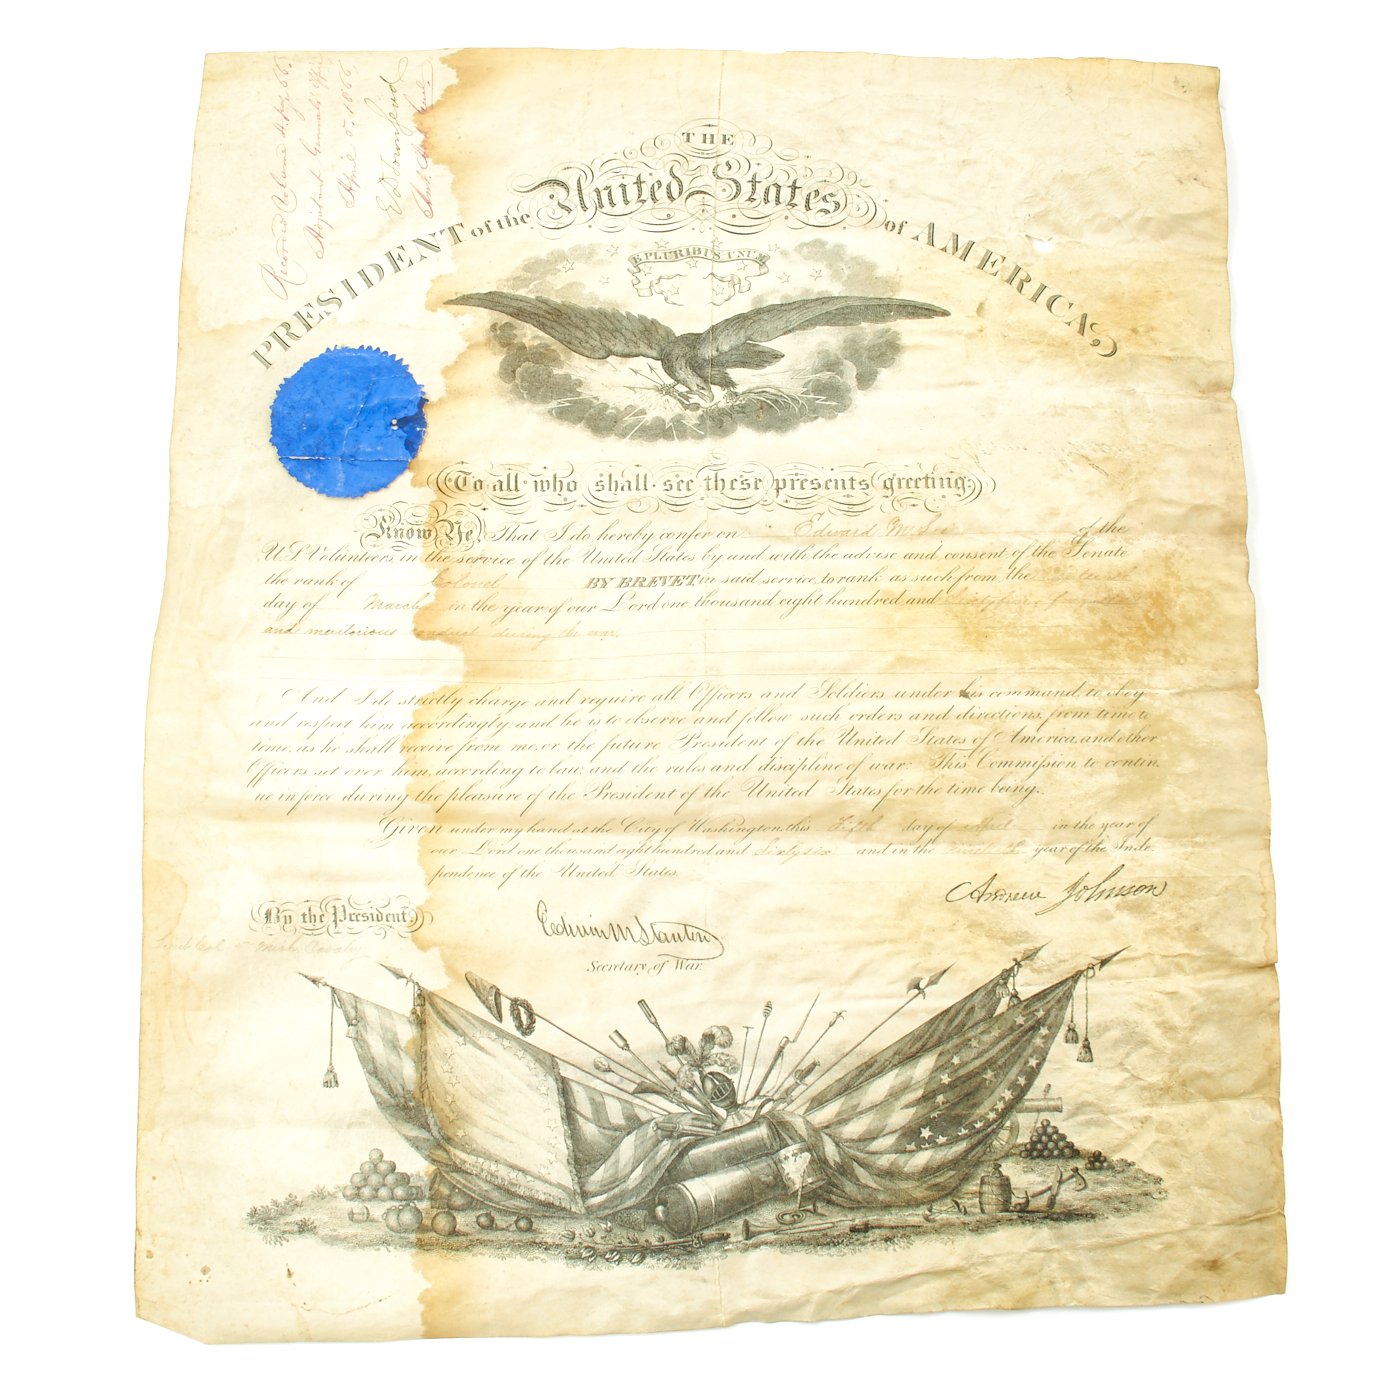 Recorded Volume
Adjutant General's Office
April 5, 1866.
E D Townsend
THE
United States
PRESIDENT of the of AMERICA,
E PLURIBUS UNUM
To all who shall see these presents greeting:
Know Ye, That I do hereby confer on Edward of the
U.S. Volunteers, in the service of the United States by and with the advise and consent of the Senate
the rank of Colonel BY BREVET in said service, to rank as such from the
day of March in the year of our Lord one thousand eight hundred and
and meritorious conduct during the war.
And I do strictly charge and require all Officers and Soldiers under his command, to obey
and respect him accordingly and he is to observe and follow such orders and directions, from time to
time, as he shall receive from me, or the future President of the United States of America, and other
Officers set over him, according to law, and the rules and discipline of war. This Commission to contin
ue in force during the pleasure of the President of the United States for the time being.
Given under my hand at the City of Washington, this Fifth day of April in the year of
our Lord one thousand eight hundred and Sixty six and in the year of the Inde-
pendence of the United States.
Andrew Johnson
By the President,
Edwin M Stanton
Lieut Col 5" Mich. Cavalry
Secretary of War.